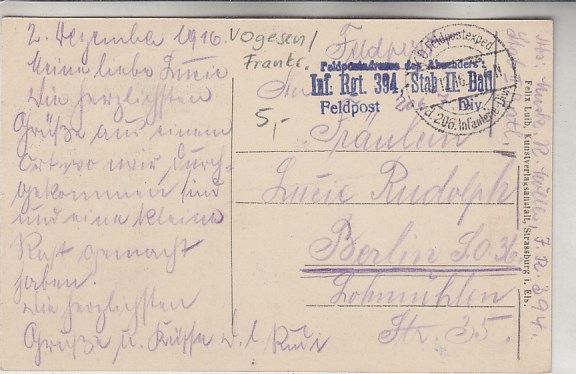 2. Dezember 1916.
Meine liebe Lucie
Die herzlichsten
Grüße aus einem
Ort wo wir durch-
gekommen sind
und eine kleine
Rast gemacht
haben.
Die herzlichsten
Grüße u. Küsse D. l. Rudi
Vogesen/
Frankr.
5,-
Feldpost
Feldpostadresse des Absenders:
Inf. Rgt. 394, Stab II. Batl.
Div.
Feldpost
Feldpostexped.
d. 206. Infanterie Div.
An
Fräulein
Lucie Rudolph
Berlin S.O. 36
Lohmühlen
Str. 35.
J. R. 394.
Felix Luib, Kunstverlagsanstalt, Strassburg i. Els.